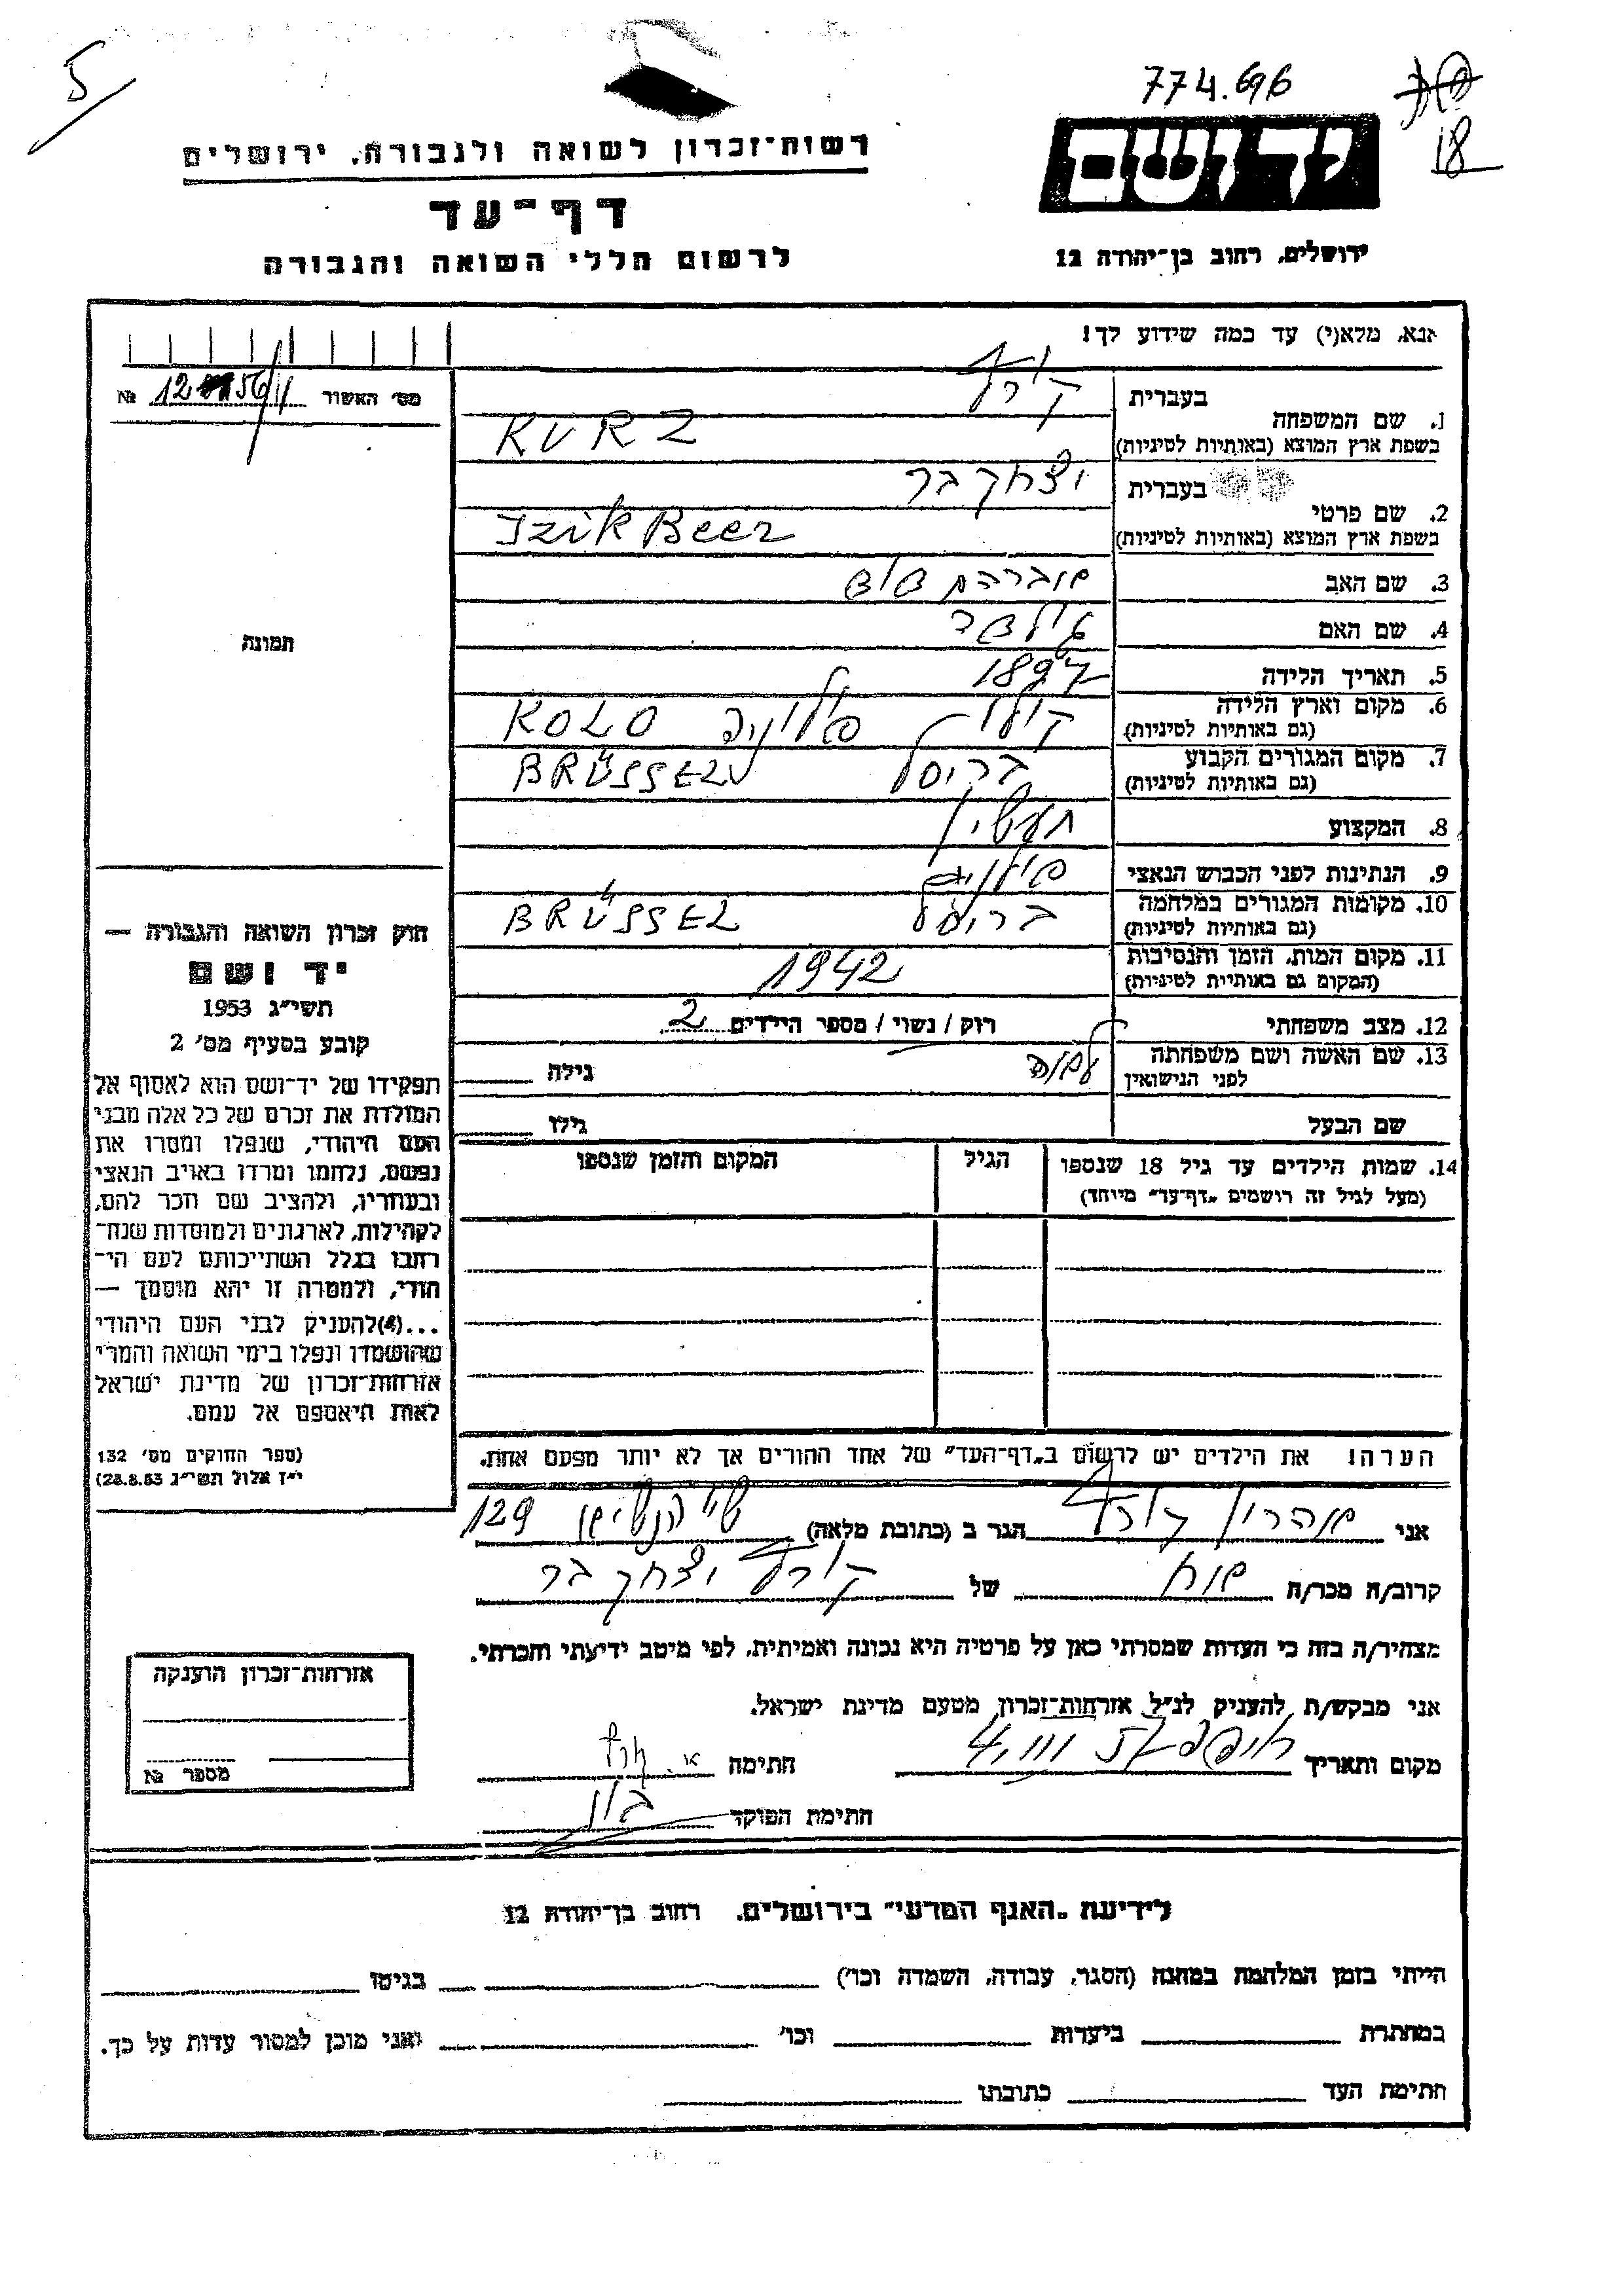 5
774.696
18
רשות־זכרון לשואה ולגבורה, ירושלים
יד ושם
דף־עד
לרשום חללי השואה והגבורה
ירושלים, רחוב בן־יהודה 12
אנא, מלא(י) עד כמה שידוע לך!
מס' האשור №
1. שם המשפחה
בעברית קורץ
בשפת ארץ המוצא (באותיות לטיניות) KURZ
2. שם פרטי
בעברית יצחק בר
בשפת ארץ המוצא (באותיות לטיניות) Izik Beer
3. שם האב אברהם
4. שם האם
5. תאריך הלידה 1897
6. מקום וארץ הלידה
(גם באותיות לטיניות) קולו פולניה KOLO
7. מקום המגורים הקבוע
(גם באותיות לטיניות) בריסל BRÜSSEL
8. המקצוע תעשין
9. הנתינות לפני הכבוש הנאצי פולנית
10. מקומות המגורים במלחמה
(גם באותיות לטיניות) בריסל BRÜSSEL
11. מקום המות, הזמן והנסיבות
(המקום גם באותיות לטיניות) 1942
12. מצב משפחתי רוק / נשוי / מספר הילדים 2
13. שם האשה ושם משפחתה
לפני הנישואין גילה
שם הבעל גילו
14. שמות הילדים עד גיל 18 שנספו הגיל המקום והזמן שנספו
(מעל לגיל זה רושמים „דף־עד" מיוחד)
הערה! את הילדים יש לרשום ב„דף־העד" של אחד ההורים אך לא יותר מפעם אחת.
תמונה
חוק זכרון השואה והגבורה —
יד ושם
תשי"ג 1953
קובע בסעיף מס' 2
תפקידו של יד־ושם הוא לאסוף אל
המולדת את זכרם של כל אלה מבני
העם היהודי, שנפלו ומסרו את
נפשם, נלחמו ומרדו באויב הנאצי
ובעוזריו, ולהציב שם וזכר להם,
לקהילות, לארגונים ולמוסדות שנח־
רבו בגלל השתייכותם לעם הי־
הודי, ולמטרה זו יהא מוסמך —
...(4)להעניק לבני העם היהודי
שהושמדו ונפלו בימי השואה והמרי
אזרחות־זכרון של מדינת ישראל
לאות היאספם אל עמם.
(ספר החוקים מס' 132
י"ז אלול תשי"ג 28.8.53)
אני אהרון קורץ הגר ב (כתובת מלאה) 129
קרוב/ה מכר/ה אח של קורץ יצחק בר
מצהיר/ה בזה כי העדות שמסרתי כאן על פרטיה היא נכונה ואמיתית, לפי מיטב ידיעתי והכרתי.
אני מבקש/ת להעניק לנ"ל אזרחות־זכרון מטעם מדינת ישראל.
מקום ותאריך חתימה א. קורץ
חתימת הפוקד
אזרחות־זכרון הוענקה
מספר №
לידיעת „האגף המדעי" בירושלים. רחוב בן־יהודה 12
הייתי בזמן המלחמה במחנה (הסגר, עבודה, השמדה וכו') בגיטו
במחתרת ביערות וכו' ואני מוכן למסור עדות על כך.
חתימת העד כתובתו